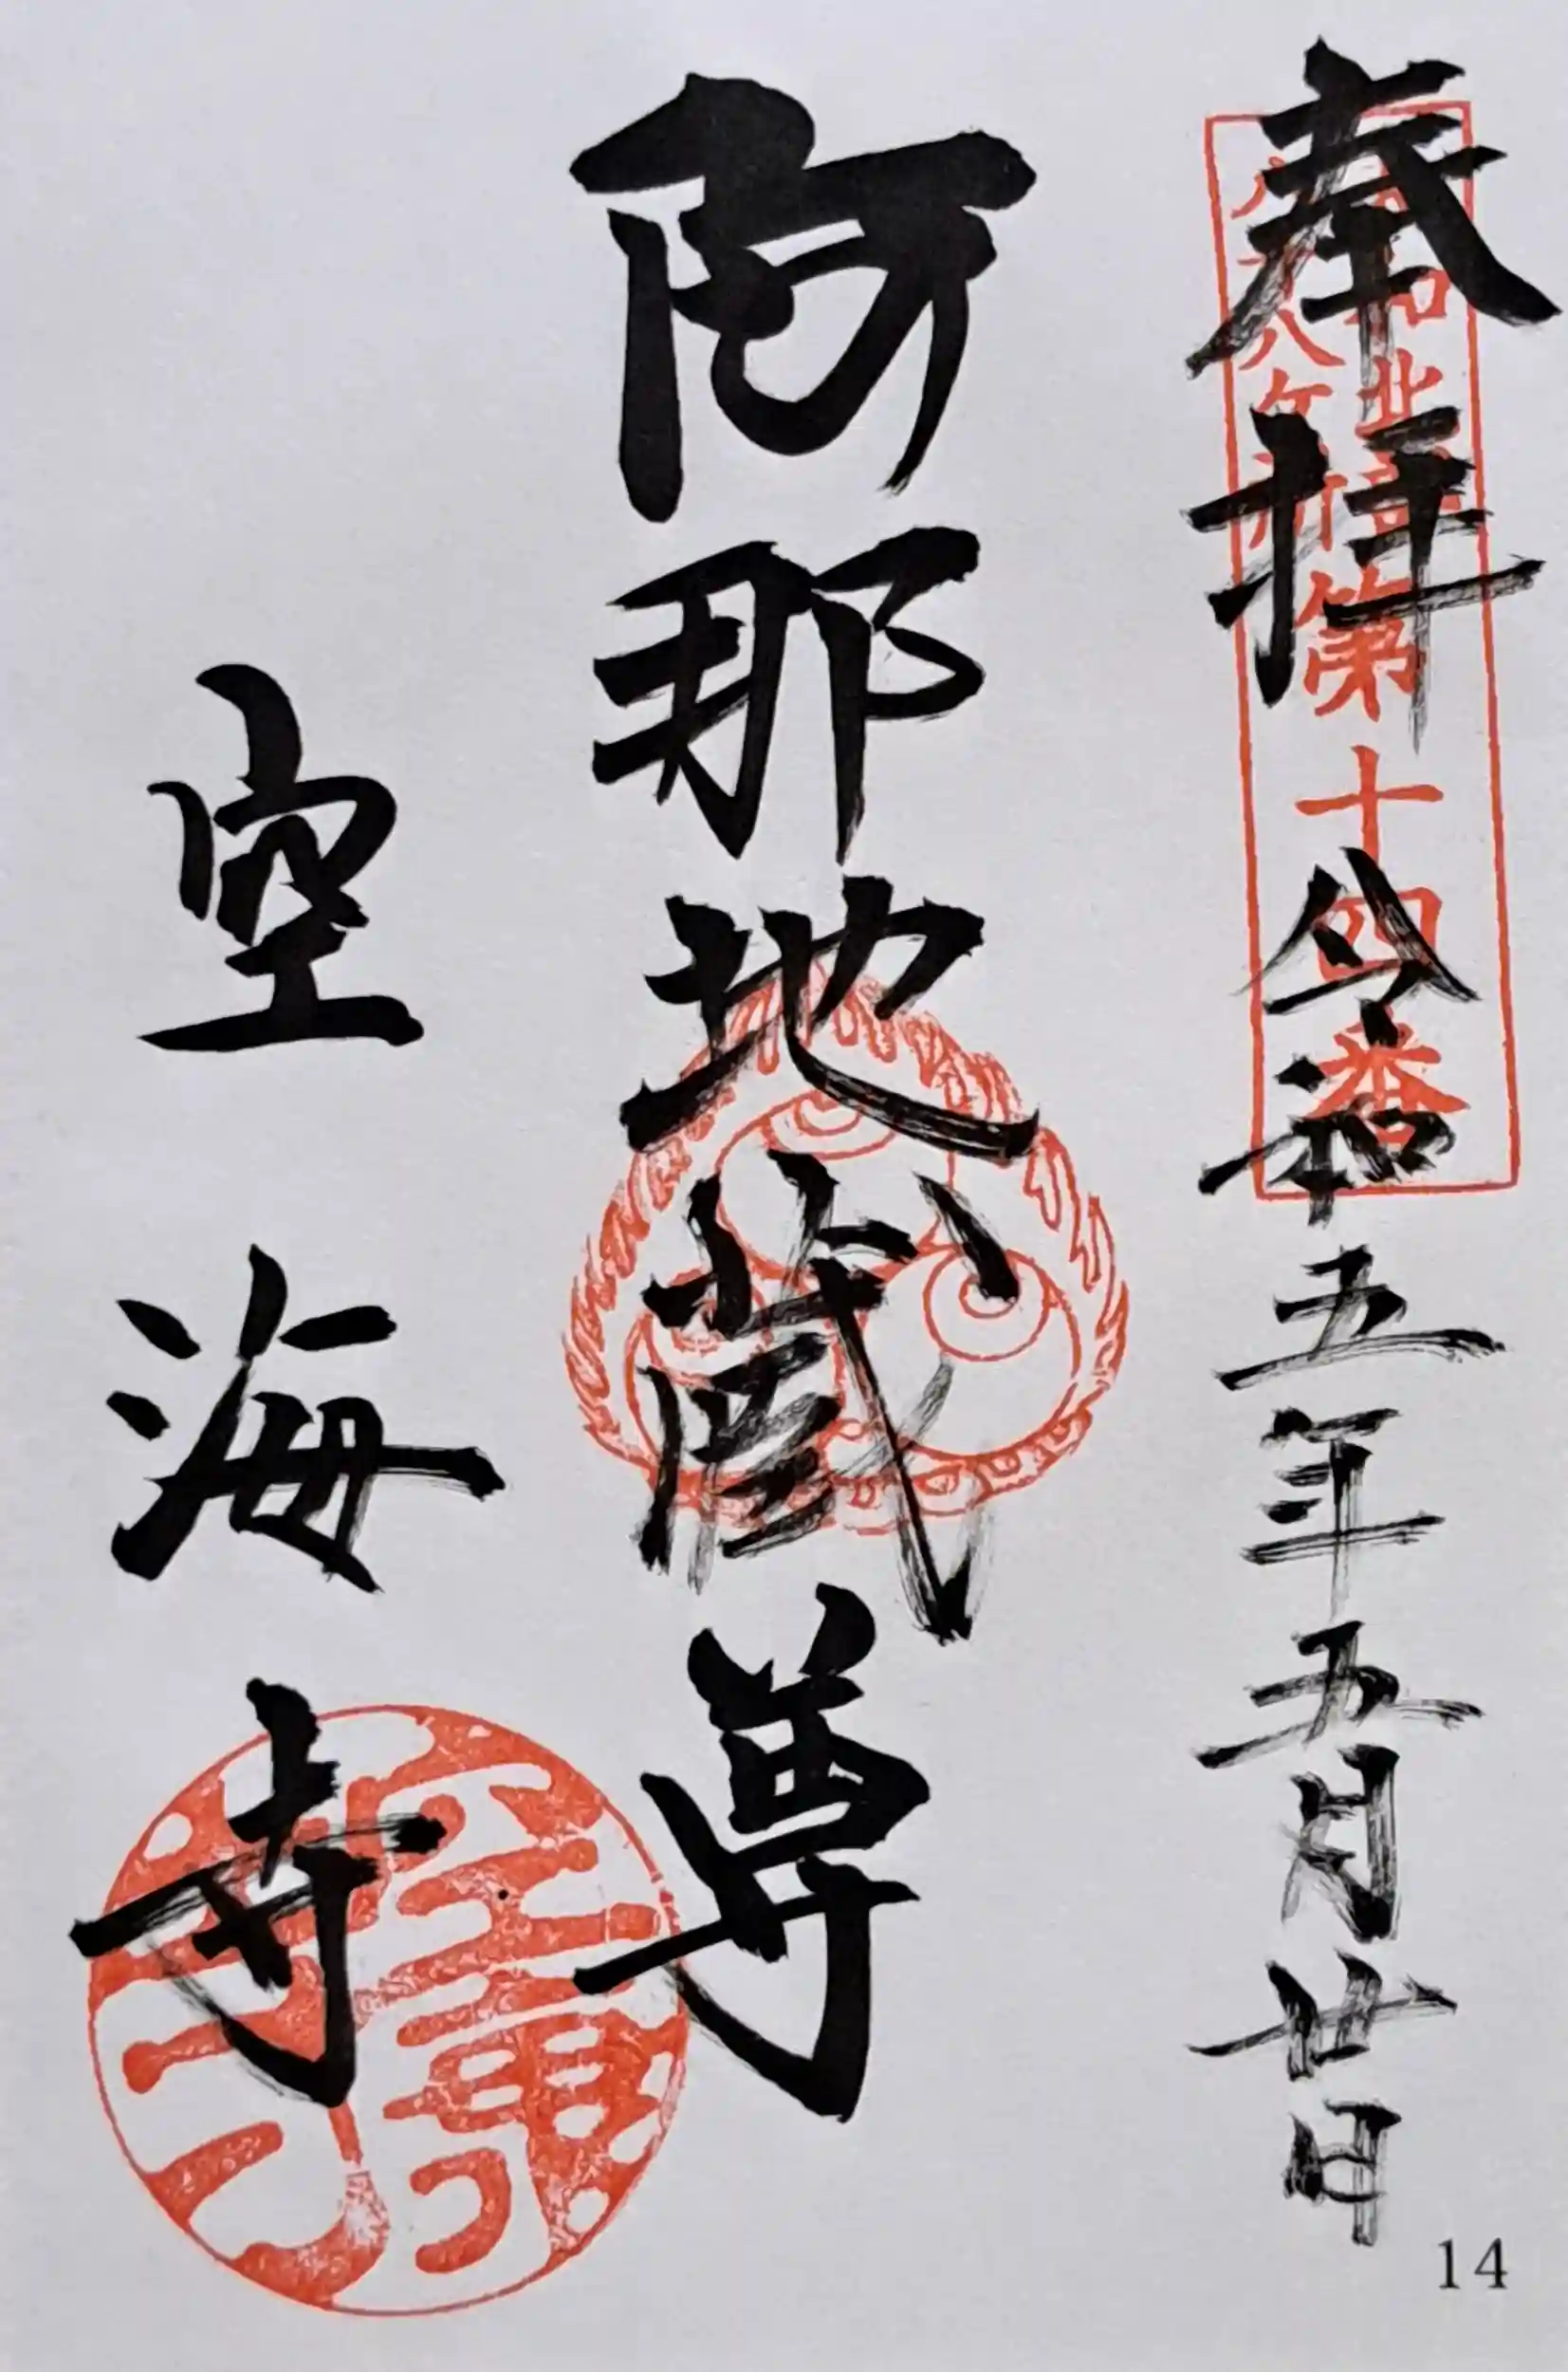 奉拝
令和五年五月廿日
大和北部
八十八ケ所
第十四番
阿那地蔵尊
空海寺
14